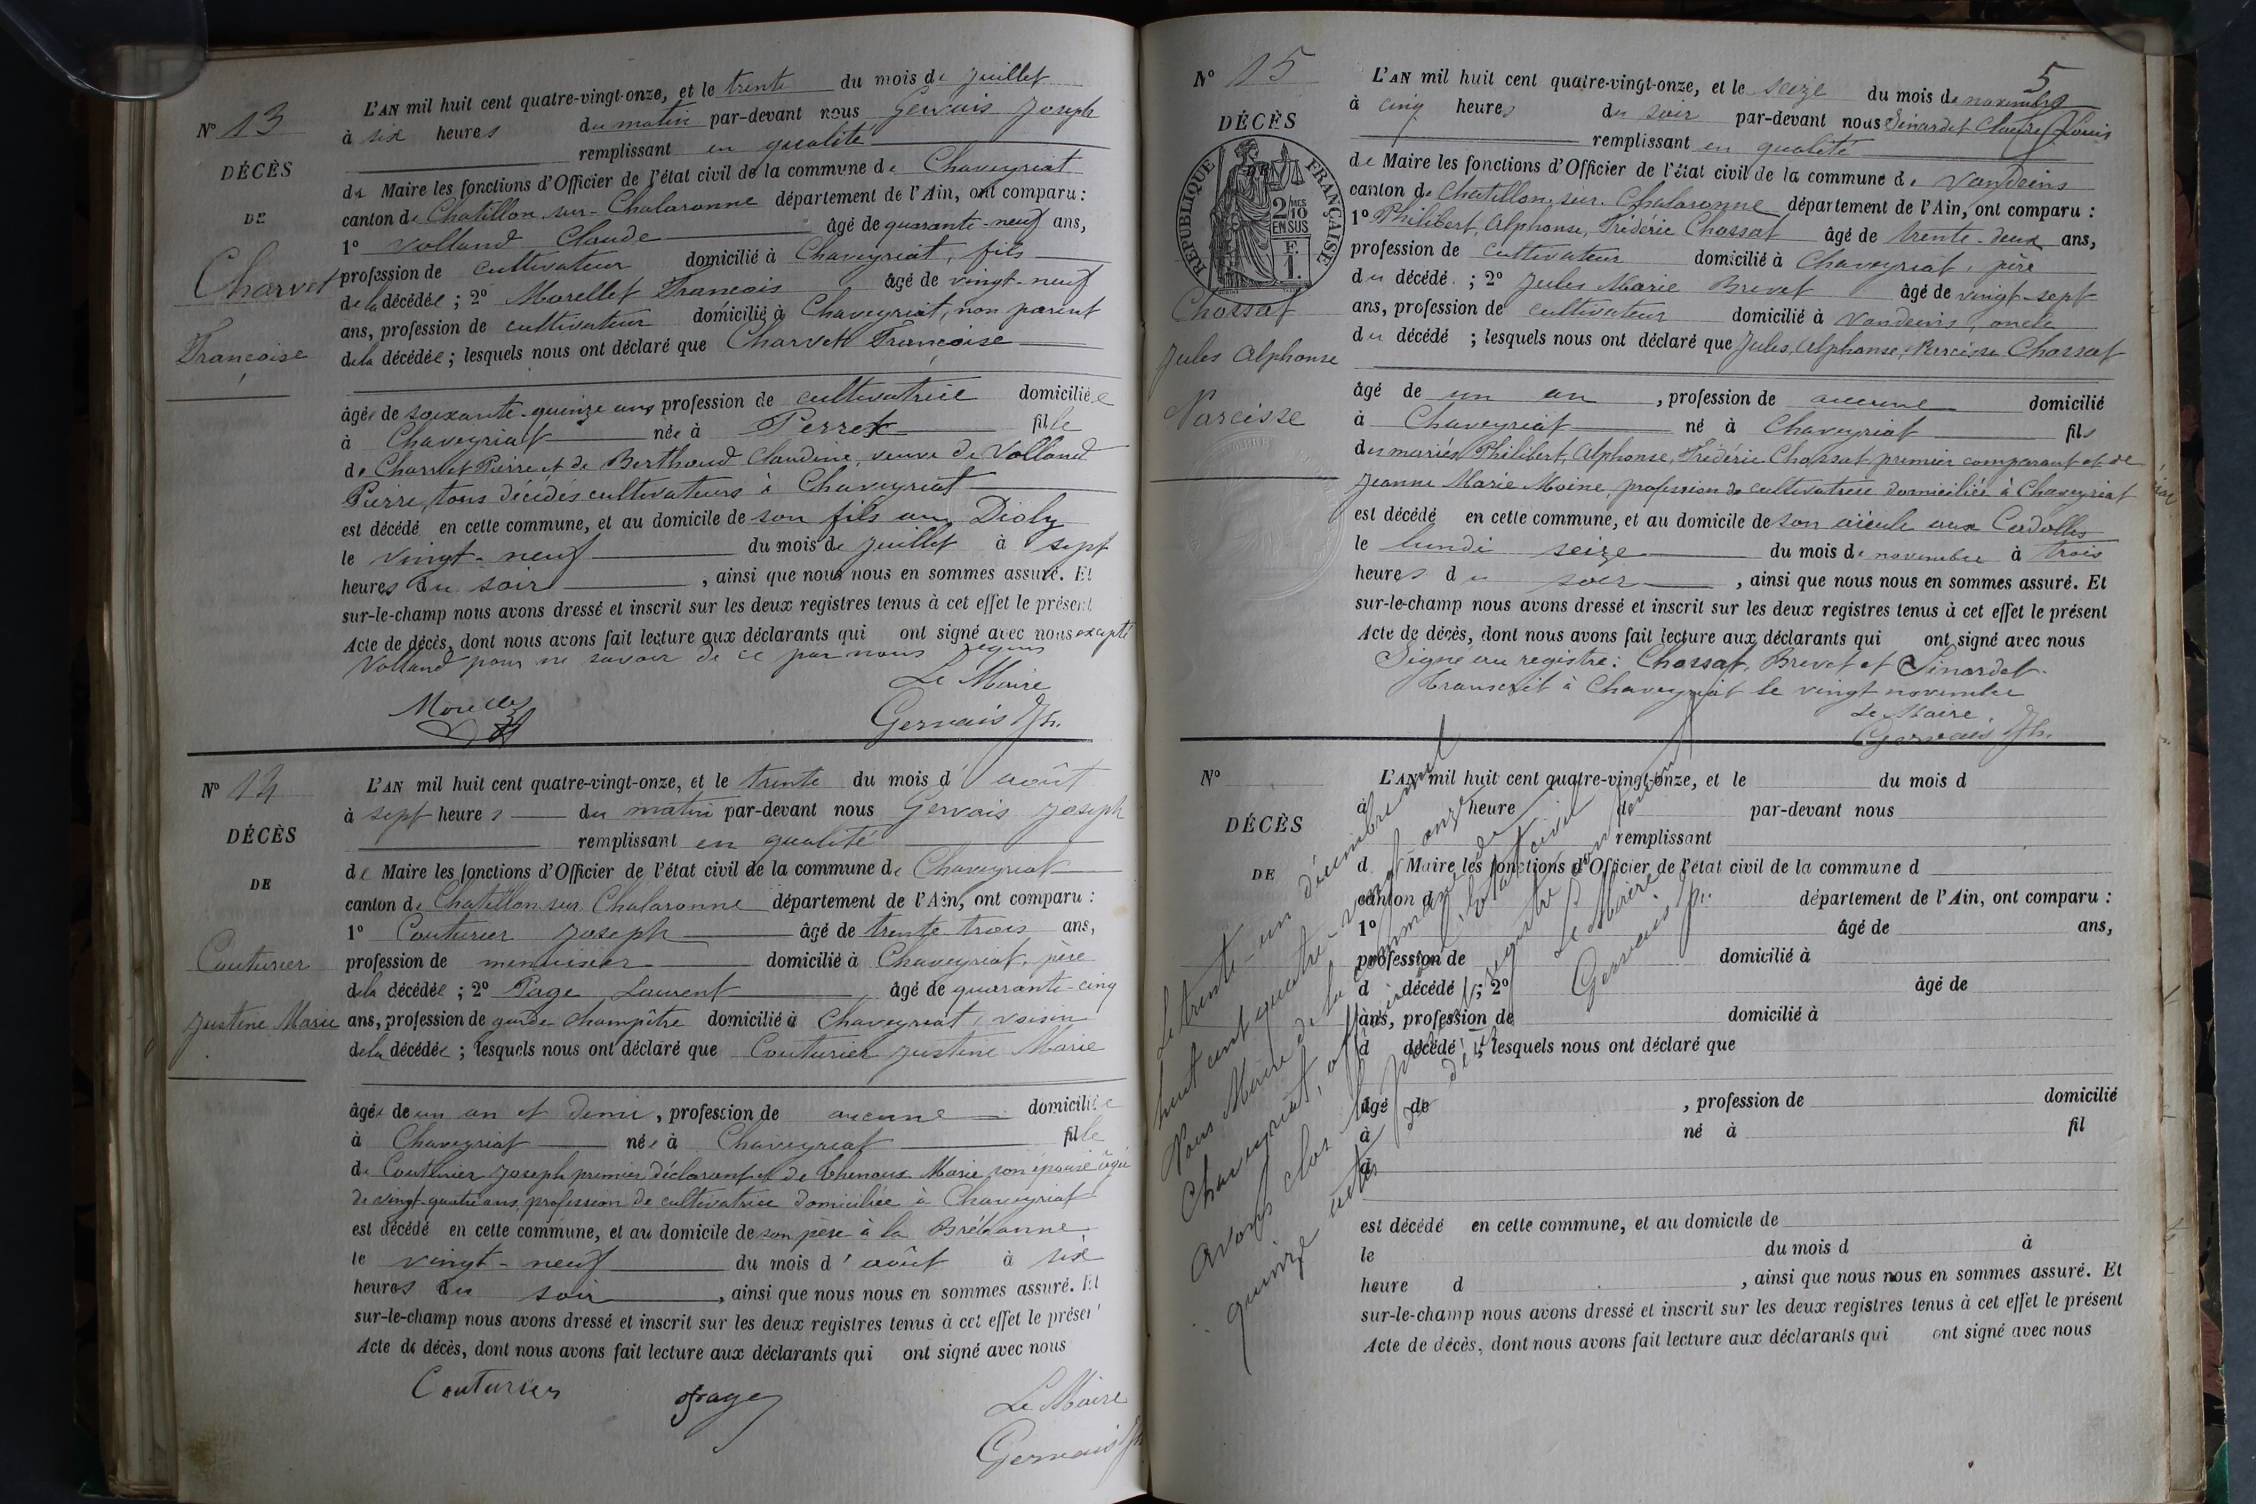 N° 13
DÉCÈS
DE
Charvet
Françoise
L'AN mil huit cent quatre-vingt-onze, et le trente du mois de juillet
à six heures du matin par-devant nous Gervais Joseph
remplissant en qualité
de Maire les fonctions d'Officier de l'état civil de la commune de Chaveyriat
canton de Chatillon-sur-Chalaronne département de l'Ain, ont comparu :
1° Volland Claude âgé de quarante-neuf ans,
profession de cultivateur domicilié à Chaveyriat, fils
de la décédée ; 2° Morellet François âgé de vingt-neuf
ans, profession de cultivateur domicilié à Chaveyriat, non parent
de la décédée ; lesquels nous ont déclaré que Charvet Françoise
âgée de soixante-quinze ans profession de cultivatrice domiciliée
à Chaveyriat née à Perrex fille
de Charvet Pierre et de Berthoud Claudine, veuve de Volland
Pierre, tous décédés cultivateurs à Chaveyriat
est décédé en cette commune, et au domicile de son fils au Dioly
le vingt-neuf du mois de juillet à sept
heures du soir, ainsi que nous nous en sommes assuré. Et
sur-le-champ nous avons dressé et inscrit sur les deux registres tenus à cet effet le présent
Acte de décès, dont nous avons fait lecture aux déclarants qui ont signé avec nous excepté
Volland pour ne savoir de ce par nous requis
Le Maire
Morellet
Gervais Jh.
N° 14
DÉCÈS
DE
Couturier
Justine Marie
L'AN mil huit cent quatre-vingt-onze, et le trente du mois d'août
à sept heures du matin par-devant nous Gervais Joseph
remplissant en qualité
de Maire les fonctions d'Officier de l'état civil de la commune de Chaveyriat
canton de Chatillon sur Chalaronne département de l'Ain, ont comparu :
1° Couturier Joseph âgé de trente-trois ans,
profession de menuisier domicilié à Chaveyriat, père
de la décédée ; 2° Page Laurent âgé de quarante-cinq
ans, profession de garde champêtre domicilié à Chaveyriat, voisin
de la décédée ; lesquels nous ont déclaré que Couturier Justine Marie
âgée de un an et demi, profession de aucune domiciliée
à Chaveyriat née à Chaveyriat fille
de Couturier Joseph premier déclarant et de Thenoux Marie son épouse âgée
de vingt-quatre ans, profession de cultivatrice domiciliée à Chaveyriat
est décédé en cette commune, et au domicile de son père à la
le vingt-neuf du mois d'août à six
heures du soir, ainsi que nous nous en sommes assuré. Et
sur-le-champ nous avons dressé et inscrit sur les deux registres tenus à cet effet le présent
Acte de décès, dont nous avons fait lecture aux déclarants qui ont signé avec nous
Couturier Page Le Maire
Gervais Jh
5
N° 15
DÉCÈS
RÉPUBLIQUE FRANÇAISE
2/10 MES
EN SUS
F.
1.
Chossat
Jules Alphonse
Narcisse
L'AN mil huit cent quatre-vingt-onze, et le seize du mois de novembre
à cinq heures du soir par-devant nous Sinardet Claude Louis
remplissant en qualité
de Maire les fonctions d'Officier de l'état civil de la commune de Vandeins
canton de Chatillon-sur-Chalaronne département de l'Ain, ont comparu :
1° Philibert, Alphonse, Frédéric Chossat âgé de trente-deux ans,
profession de cultivateur domicilié à Chaveyriat, père
du décédé ; 2° Jules Marie Brevet âgé de vingt-sept
ans, profession de cultivateur domicilié à Vandeins, oncle
du décédé ; lesquels nous ont déclaré que Jules, Alphonse, Narcisse Chossat
âgé de un an, profession de aucune domicilié
à Chaveyriat né à Chaveyriat fils
des mariés Philibert, Alphonse, Frédéric Chossat premier comparant et de
Jeanne Marie Moine, profession de cultivatrice domiciliée à Chaveyriat
est décédé en cette commune, et au domicile de son aieule aux Cadolles
le lundi seize du mois de novembre à trois
heures du soir, ainsi que nous nous en sommes assuré. Et
sur-le-champ nous avons dressé et inscrit sur les deux registres tenus à cet effet le présent
Acte de décès, dont nous avons fait lecture aux déclarants qui ont signé avec nous
Signé au registre : Chossat, Brevet et Sinardet.
Transcrit à Chaveyriat le vingt novembre
Le Maire,
Gervais Jh.
N°
DÉCÈS
DE
L'AN mil huit cent quatre-vingt-onze, et le du mois d
à heure d par-devant nous
remplissant
d Maire les fonctions d'Officier de l'état civil de la commune d
canton d département de l'Ain, ont comparu :
1° âgé de ans,
profession de domicilié à
d décédé ; 2° âgé de
ans, profession de domicilié à
d décédé ; lesquels nous ont déclaré que
âgé de , profession de domicilié
à né à fil
d
est décédé en cette commune, et au domicile de
le du mois d à
heure d , ainsi que nous nous en sommes assuré. Et
sur-le-champ nous avons dressé et inscrit sur les deux registres tenus à cet effet le présent
Acte de décès, dont nous avons fait lecture aux déclarants qui ont signé avec nous
Le trente-un décembre mil
huit cent quatre-vingt-onze
Nous Maire de la commune de
Chaveyriat, officier de l'état civil
avons clos le présent registre contenant
quinze actes de décès
Le Maire
Gervais Jh.